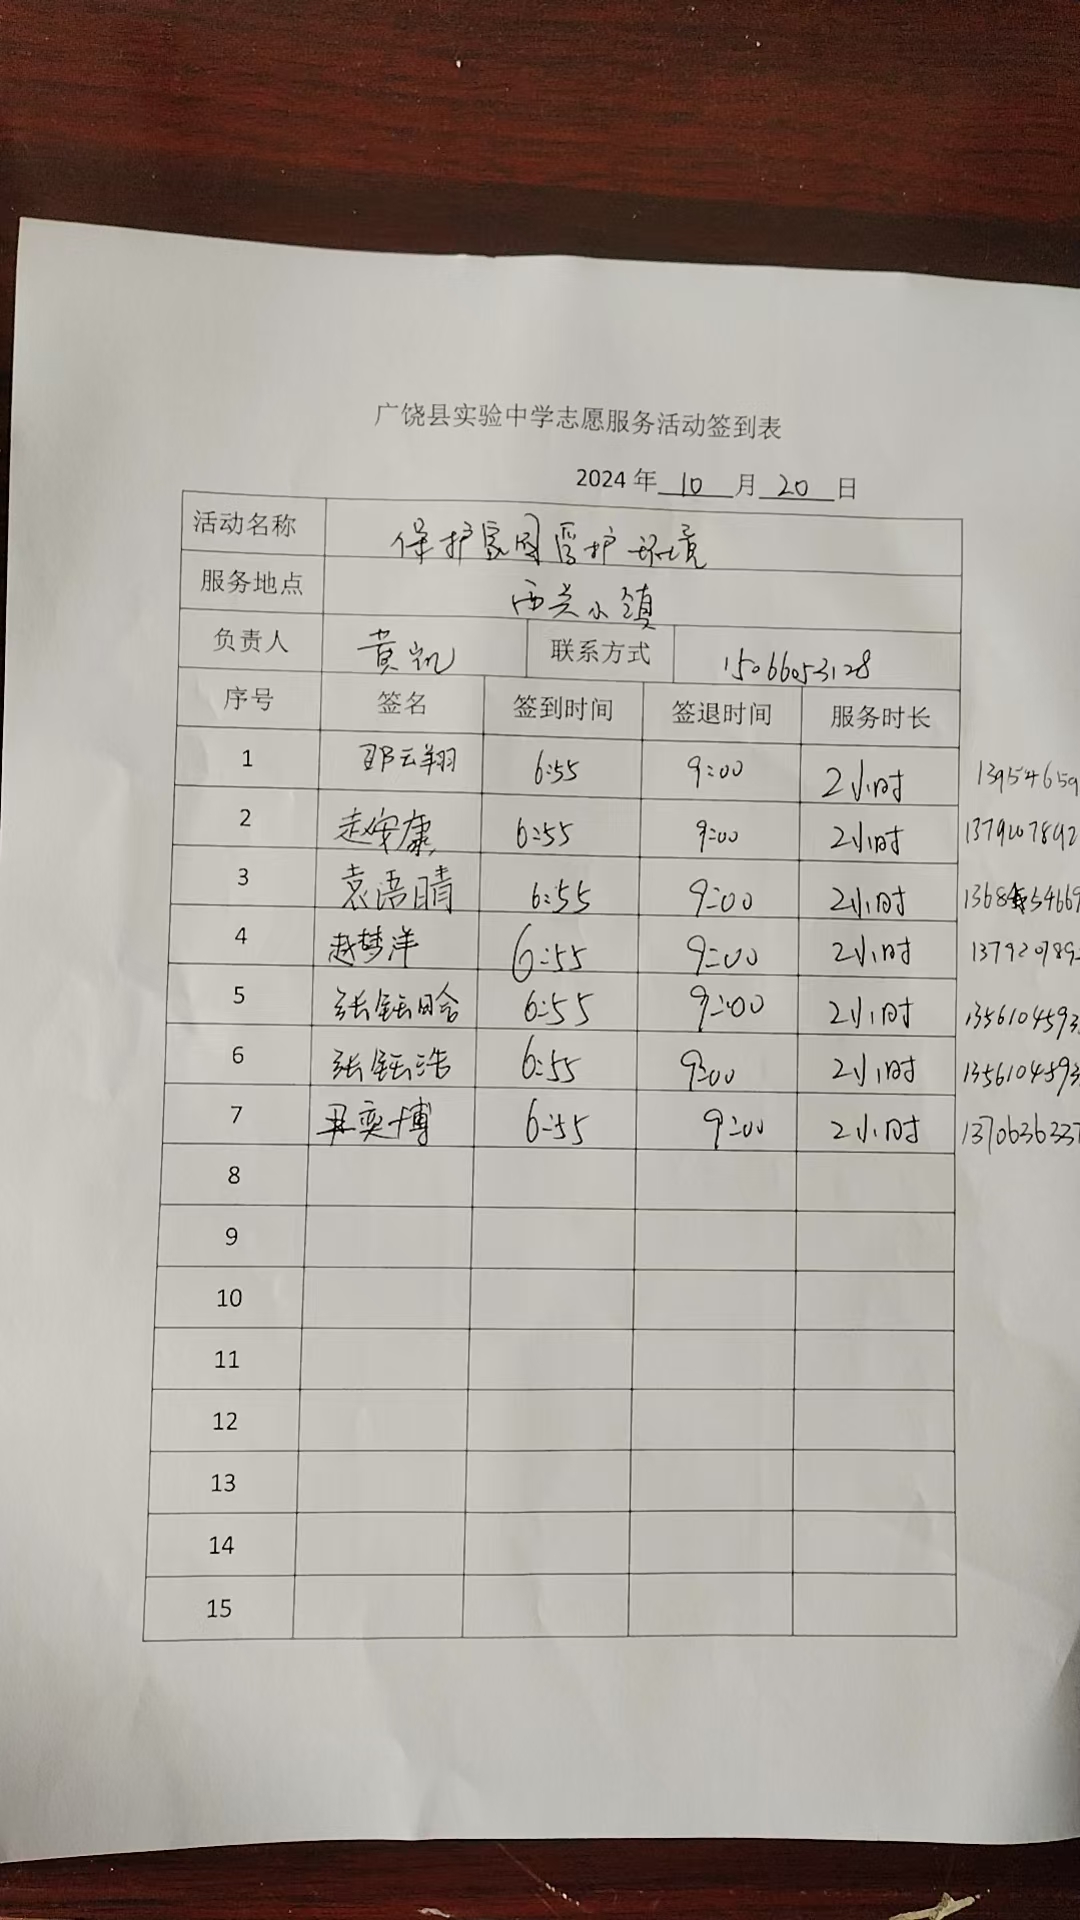 广饶县实验中学志愿服务活动签到表
2024 年 10 月 20 日
活动名称 保护家园爱护环境
服务地点 西关小镇
负责人 黄凯 联系方式 15066053128
序号 签名 签到时间 签退时间 服务时长
1 邵云翔 6:55 9:00 2小时 13954659
2 赵安康 6:55 9:00 2小时 1379207892
3 袁语晴 6:55 9:00 2小时
4 赵梦洋 6:55 9:00 2小时 137920789
5 张钰晗 6:55 9:00 2小时 1356104593
6 张钰浩 6:55 9:00 2小时 1356104593
7 奕博 6:55 9:00 2小时 1370636337
8
9
10
11
12
13
14
15